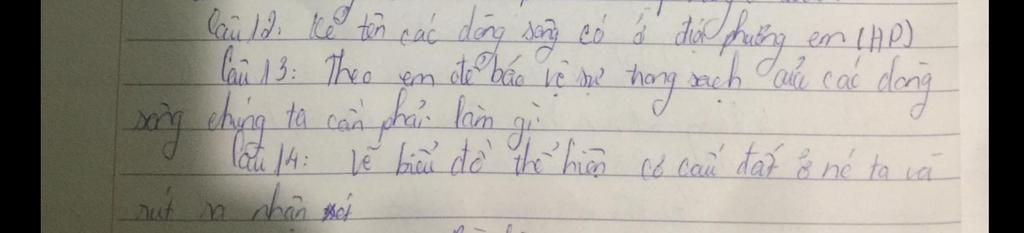 Câu 12: Kể tên các dòng sông có ở địa phương em (HP)
Câu 13: Theo em để bảo vệ sự trong sạch của các dòng
sông chúng ta cần phải làm gì
Câu 14: Vẽ biểu đồ thể hiện cơ cấu đất ở nc ta và
rút ra nhận xét